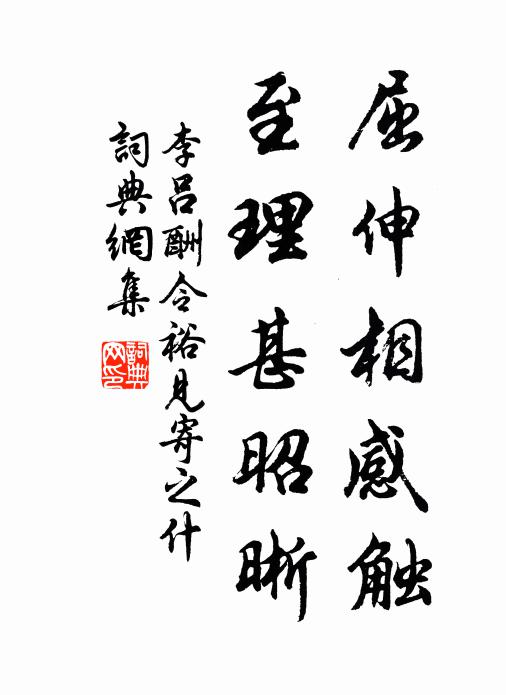 屈伸相感触
至理甚昭晰
李吕酬令裕见寄之什
詞典網集
詞典网印